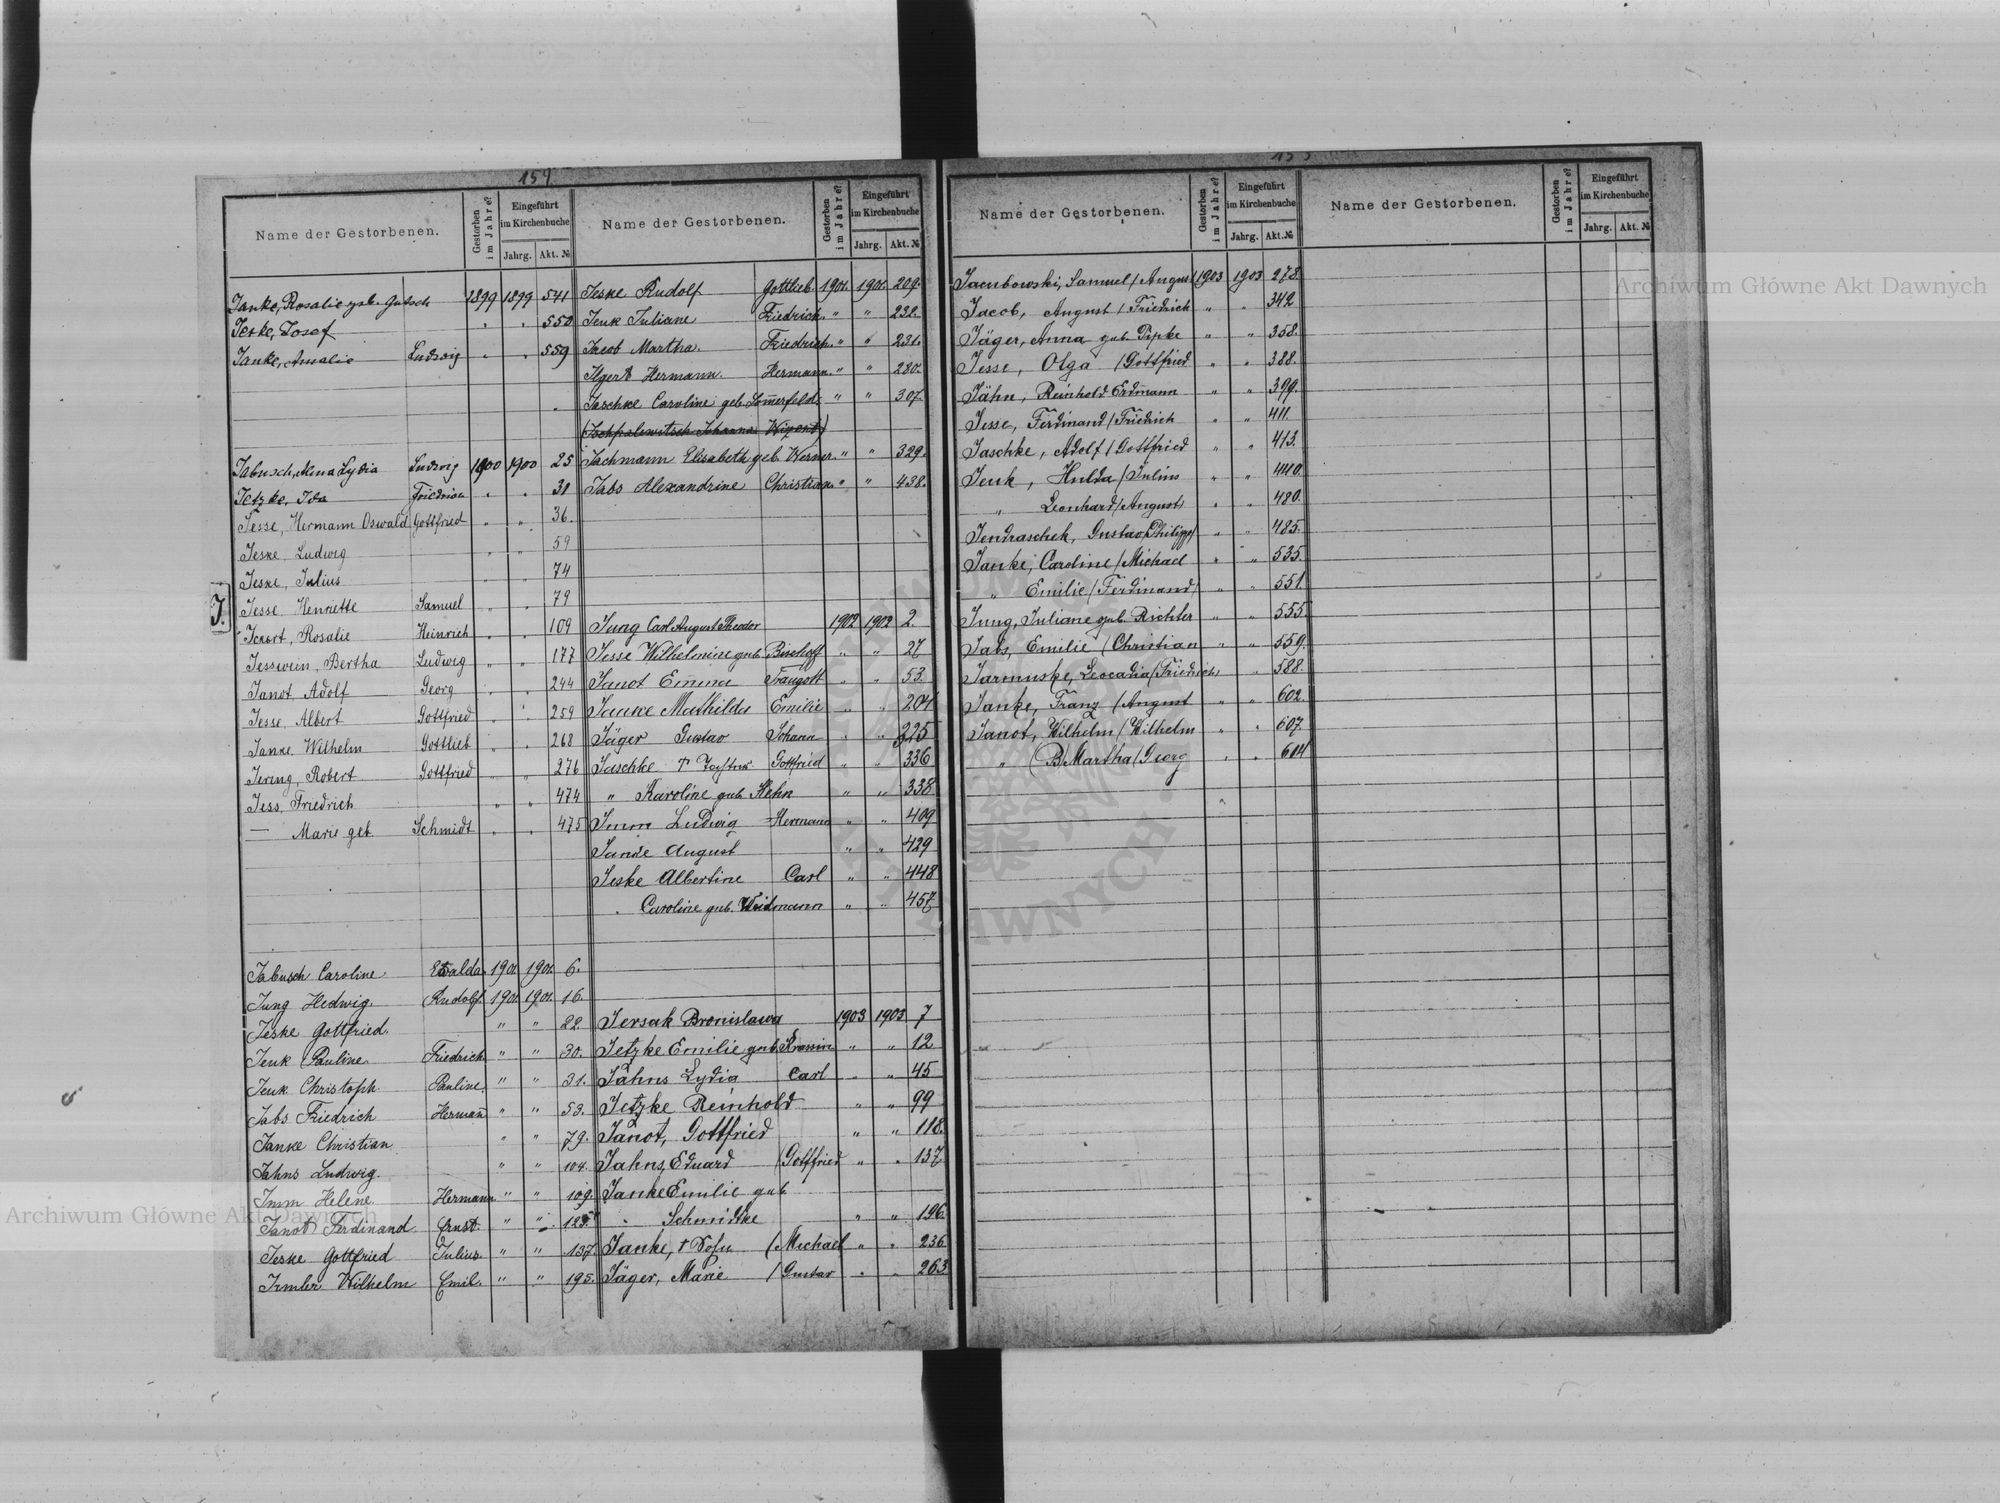 159
Name der Gestorbenen.
Gestorben im Jahre?
Eingeführt im Kirchenbuche
Jahrg.
Akt. №
Janke, Rosalie geb. Gutsch 1899 1899 541
Jeske, Josef " " 550
Janke, Amalie Ludwig " " 559
Jabusch, Alma Lydia Ludwig 1900 1900 25
Jetzke, Ida Friedrich " " 31
Jesse, Hermann Oswald Gottfried " " 36.
Jeske Ludwig " " 59
Jeske, Julius " " 74
J.
Jesse Henriette Samuel " " 79
Rosalie Heinrich " " 109
Jesswein, Bertha Ludwig " " 177
Janot, Adolf Georg " " 244
Jesse, Albert Gottfried " " 259
Janke, Wilhelm Gottlieb " " 268
Jering, Robert Gottfried " " 276
Jess, Friedrich " " 474
— Marie geb. Schmidt " " 475
Jabusch Caroline 1901. 1901. 6.
Jung Hedwig Rudolf 1901. 1901. 16.
Jeske Gottfried. " " 22
Jenk Pauline Friedrich " " 30.
Jenk Christoph. Pauline. " " 31.
Jabs Friedrich Hermann " " 53.
Janke Christian " " 79.
Jahns Ludwig. " " 104.
Imm Helene Hermann " " 109.
Janot Ferdinand Ernst. " "
Jeske Gottfried Julius. " " 137.
Irmler Wilhelm Emil. " " 195.
Name der Gestorbenen.
Gestorben im Jahre?
Eingeführt im Kirchenbuche
Jahrg.
Akt. №
Jeske Rudolf Gottlieb. 1901. 1901. 209.
Jenk Juliane Friedrich. " " 232.
Jacob Martha. Friedrich. " " 231.
Ilgert Hermann. Hermann. " " 280.
Jaschke Caroline geb. Sommerfeld. " " 307.
Jachmann Elisabeth geb. Werner. " " 329.
Jabs Alexandrine Christian. " " 438.
Jung Carl August Theodor 1902 1902 2.
Jesse Wilhelmine geb. Bischoff " " 27
Janot Emma Traugott " " 53.
Janke Mathilde Emilie " " 204
Jäger Gustav Johann " " 225
Jaschke Gottfried " " 336
" Karoline geb. Hehn " " 338
Imm Ludwig Hermann " " 409
Janke August " " 429
Jeske Albertine Carl " " 448
" Caroline geb. Weidmann " " 457
Jersak Bronislawa 1903 1903 7
Jetzke Emilie geb. Krassin " " 12
Jahns Lydia Carl " " 45
Jetzke Reinhold " " 99
Janot, Gottfried " " 118.
Jahns, Eduard / Gottfried " " 137.
Janke Emilie geb.
" Schmidtke " " 196.
Janke, / Michael " " 236
Jäger, Marie / Gustav " " 263
Name der Gestorbenen.
Gestorben im Jahre?
Eingeführt im Kirchenbuche
Jahrg.
Akt. №
Jacubowski, Samuel / August 1903 1903 278.
Jacob, August / Friedrich " " 342
Jäger, Anna geb. Pipke " " 358.
Jesse, Olga / Gottfried " " 388.
Jähn, Reinhold Erdmann " " 399.
Jesse, Ferdinand / Friedrich " " 411.
Jaschke, Adolf / Gottfried " " 413.
Jenk, Hulda / Julius " " 440.
" Leonhard / August / " " 480.
Jendraschek, Gustav / Philipp / " " 485.
Janke, Caroline / Michael " " 535.
" Emilie / Ferdinand / " " 551.
Jung, Juliane geb. Richter " " 555.
Jabs, Emilie / Christian " " 559.
Jarmuske, Leocadia / Friedrich / " " 588.
Janke, Franz / August " " 602.
Janot, Wilhelm / Wilhelm " " 607.
" Martha / Georg " " 614
Name der Gestorbenen.
Gestorben im Jahre?
Eingeführt im Kirchenbuche
Jahrg.
Akt. №
Archiwum Główne Akt Dawnych
Archiwum Główne Akt Dawnych
DAWNYCH